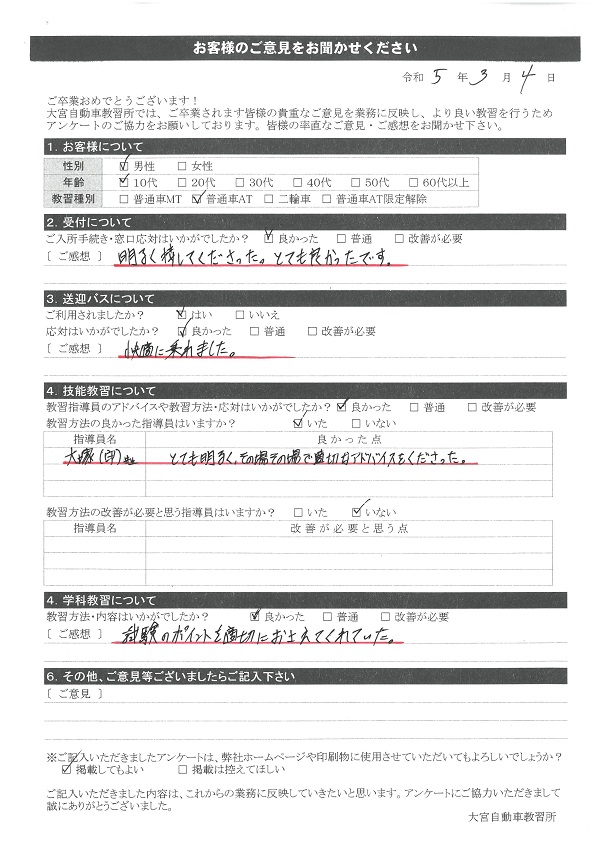 お客様のご意見をお聞かせください
令和 5 年 3 月 4 日
ご卒業おめでとうございます！
大宮自動車教習所では、ご卒業されます皆様の貴重なご意見を業務に反映し、より良い教習を行うため
アンケートのご協力をお願いしております。皆様の率直なご意見・ご感想をお聞かせ下さい。
1. お客様について
性別 ☑ 男性 □ 女性
年齢 ☑ 10代 □ 20代 □ 30代 □ 40代 □ 50代 □ 60代以上
教習種別 □ 普通車MT ☑ 普通車AT □ 二輪車 □ 普通車AT限定解除
2. 受付について
ご入所手続き・窓口応対はいかがでしたか？ ☑ 良かった □ 普通 □ 改善が必要
[ ご感想 ] 明るく接してくださった。とても良かったです。
3. 送迎バスについて
ご利用されましたか？ ☑ はい □ いいえ
応対はいかがでしたか？ ☑ 良かった □ 普通 □ 改善が必要
[ ご感想 ] 快適に乗れました。
4. 技能教習について
教習指導員のアドバイスや教習方法・応対はいかがでしたか？ ☑ 良かった □ 普通 □ 改善が必要
教習方法の良かった指導員はいますか？ ☑ いた □ いない
指導員名 良かった点
大塚(印) とても明るく、その場その場で適切なアドバイスをくださった。
教習方法の改善が必要と思う指導員はいますか？ □ いた ☑ いない
指導員名 改善が必要と思う点
4. 学科教習について
教習方法・内容はいかがでしたか？ ☑ 良かった □ 普通 □ 改善が必要
[ ご感想 ] 試験のポイントを適切におさえてくれていた。
6. その他、ご意見等ございましたらご記入下さい
[ ご意見 ]
※ご記入いただきましたアンケートは、弊社ホームページや印刷物に使用させていただいてもよろしいでしょうか？
☑ 掲載してもよい □ 掲載は控えてほしい
ご記入いただきました内容は、これからの業務に反映していきたいと思います。アンケートにご協力いただきまして
誠にありがとうございました。
大宮自動車教習所